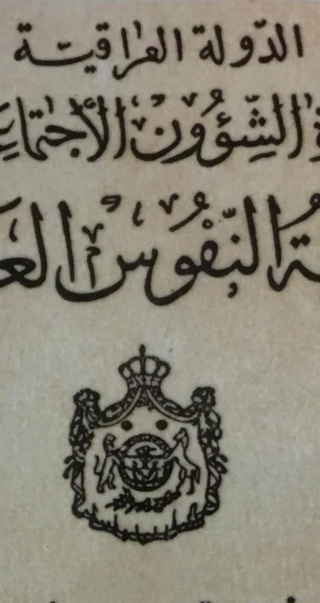 الدّولة العراقيّة
الشِّؤُون الأجتماعي
النّفُوس الع